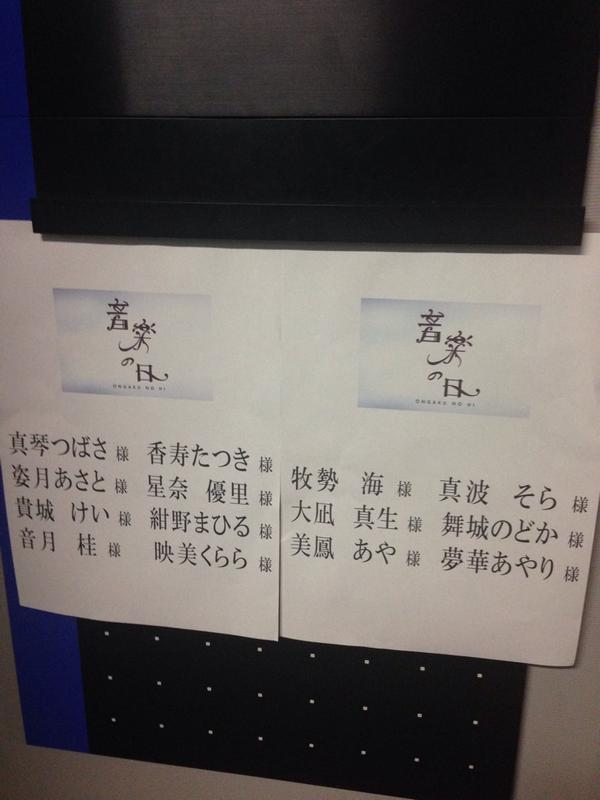 音楽の日
ONGAKU NO HI
真琴つばさ 様 香寿たつき 様
姿月あさと 様 星奈 優里 様
貴城 けい 様 紺野まひる 様
音月 桂 様 映美くらら 様
音楽の日
ONGAKU NO HI
牧勢 海 様 真波 そら 様
大凪 真生 様 舞城のどか 様
美鳳 あや 様 夢華あやり 様